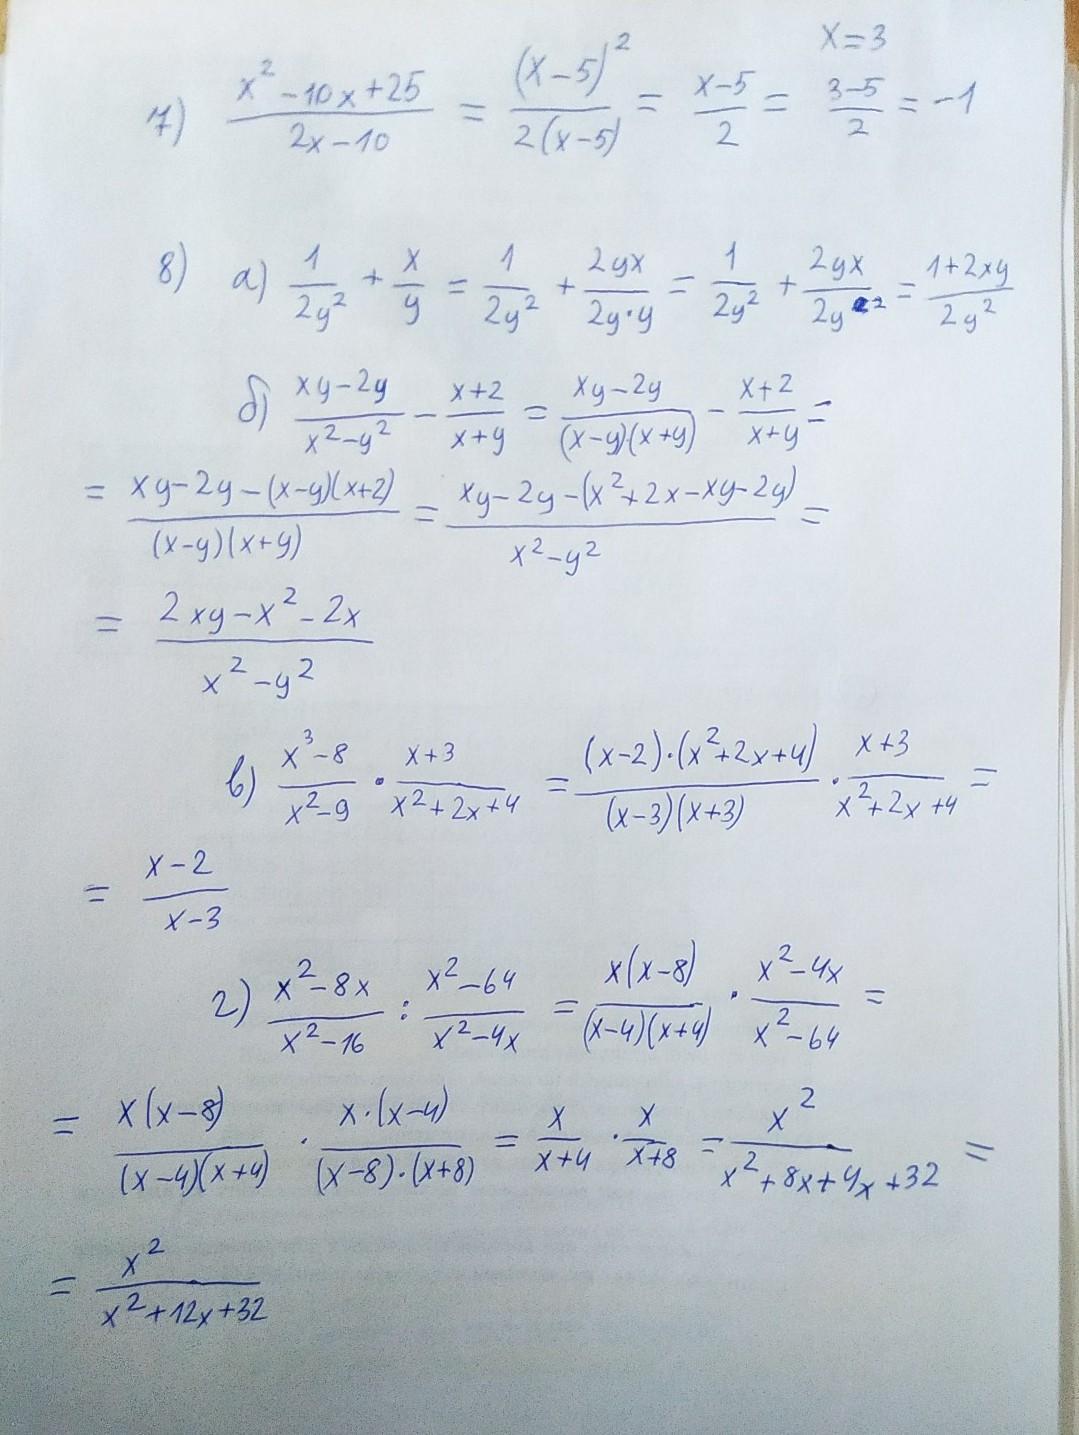 x=3
7) (x²-10x+25)/(2x-10) = (x-5)²/(2(x-5)) = (x-5)/2 = (3-5)/2 = -1
8) а) 1/(2y²) + x/y = 1/(2y²) + 2yx/(2y·y) = 1/(2y²) + 2yx/(2y²) = (1+2xy)/(2y²)
б) (xy-2y)/(x²-y²) - (x+2)/(x+y) = (xy-2y)/((x-y)(x+y)) - (x+2)/(x+y) =
= (xy-2y-(x-y)(x+2))/((x-y)(x+y)) = (xy-2y-(x²+2x-xy-2y))/(x²-y²) =
= (2xy-x²-2x)/(x²-y²)
в) (x³-8)/(x²-9) · (x+3)/(x²+2x+4) = ((x-2)·(x²+2x+4))/((x-3)(x+3)) · (x+3)/(x²+2x+4) =
= (x-2)/(x-3)
г) (x²-8x)/(x²-16) : (x²-64)/(x²-4x) = x(x-8)/((x-4)(x+4)) · (x²-4x)/(x²-64) =
= x(x-8)/((x-4)(x+4)) · x·(x-4)/((x-8)·(x+8)) = x/(x+4) · x/(x+8) = x²/(x²+8x+4x+32) =
= x²/(x²+12x+32)